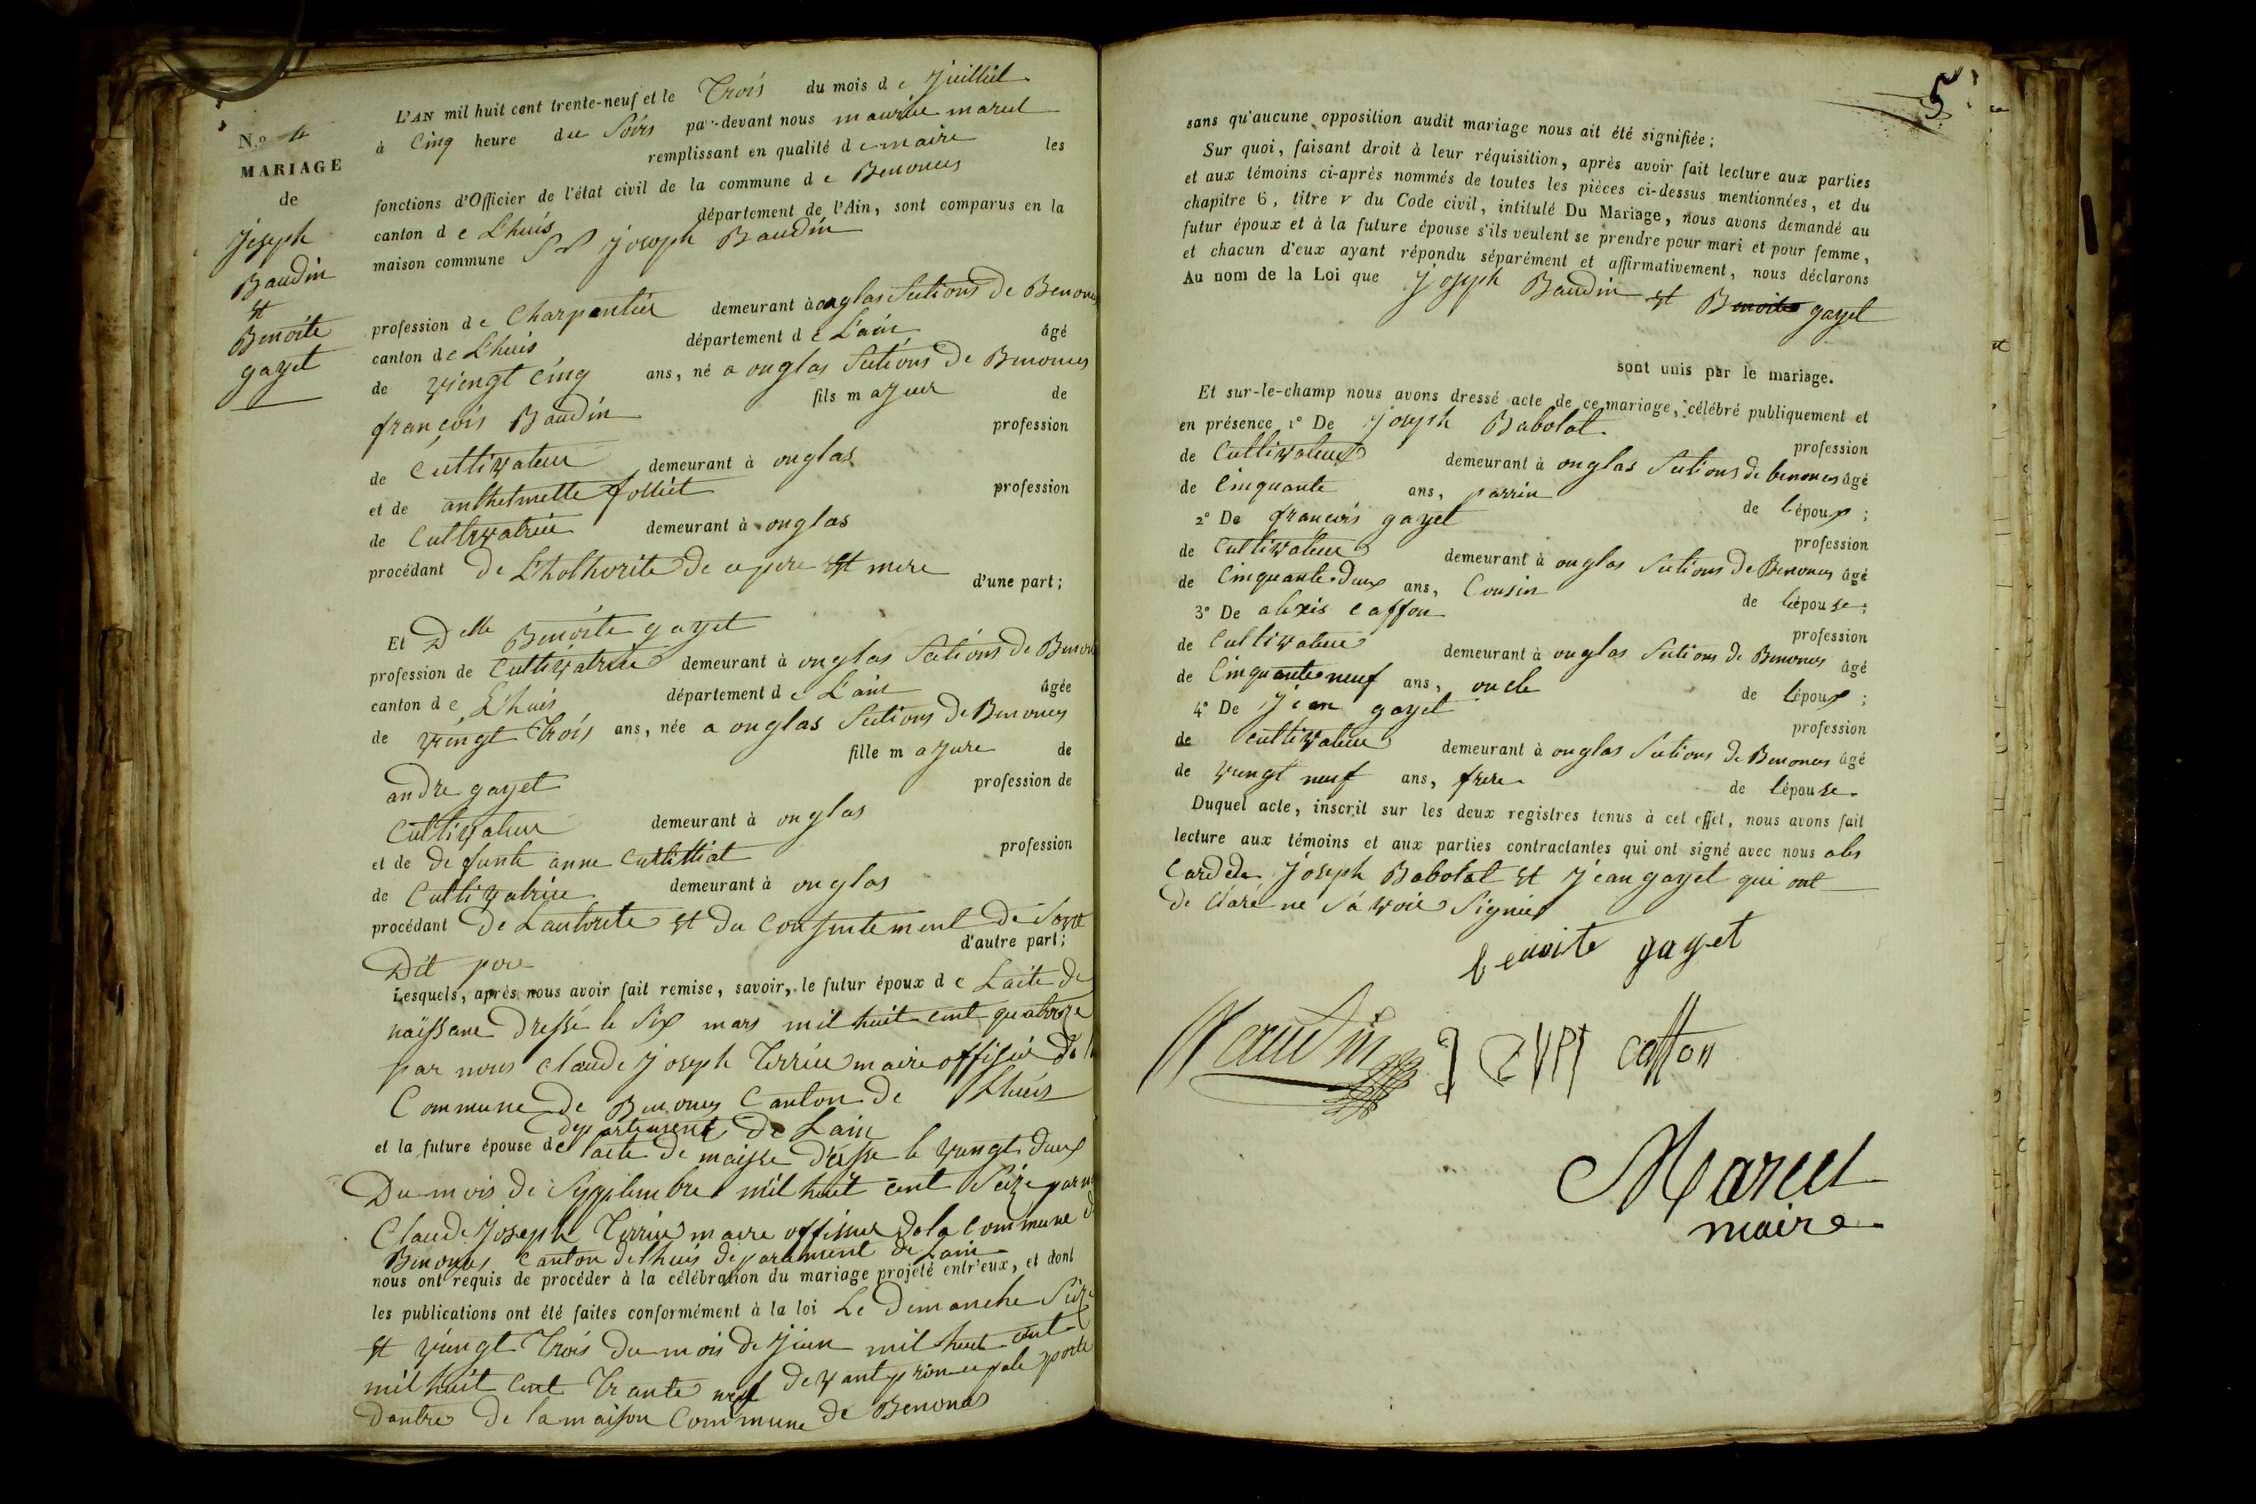 N.º 4
MARIAGE
de
Joseph
Baudin
et
Benoite
gayet
L'AN mil huit cent trente-neuf et le Trois du mois de Juilliet
à Cinq heure du Soirs par-devant nous maurice marcel
remplissant en qualité de maire les
fonctions d'Officier de l'état civil de la commune de Benonces
canton de Lhuis département de l'Ain, sont comparus en la
maison commune Sr Joseph Baudin
profession de Charpentier demeurant à onglas Sections de Benonces
canton de Lhuis département de L'ain âgé
de viengt cinq ans, né a onglas Sections de Benonces
fils majeur de
françois Baudin profession
de Cultivateur demeurant à onglas
et de anthelmette folliet profession
de Cultivatrice demeurant à onglas
procédant de L'hothorite de ce pere et mere
d'une part;
Et Delle Benoite gayet
profession de Cultivatrice demeurant à onglas Sections de Benonces
canton de L'huis département de L'ain âgée
de vingt Trois ans, née a onglas Sections De Benonces
fille majure de
andre gayet profession de
Cultivateur demeurant à onglas
et de defunte anne profession
de Cultivatrice demeurant à onglas
procédant de Lautorite et du Consentement de
d'autre part;
Dit pere
Lesquels, après nous avoir fait remise, savoir, le futur époux de Lacte de
naissane Dressé le Six mars mil huit cent quatorze
par nous claude Joseph Terrier maire offisier de la
Commune de Benonces Canton de Lhuis
departement de Lain
et la future épouse de lacte de naisse dresse le vingt deux
Du mois de Sepptembre mil huit cent Seize par nous
Claude Joseph Terrier maire offisier dela commune de
Benonces canton delhuis departement de Lain
nous ont requis de procéder à la célébration du mariage projeté entr'eux, et dont
les publications ont été faites conformément à la loi Le Dimanche Seize
et viengt Trois du mois de Juin mil huit cent
mil huit cent Trante neuf devant principale porte
dantre de la maison Commune de Benonces
5
sans qu'aucune opposition audit mariage nous ait été signifiée;
Sur quoi, faisant droit à leur réquisition, après avoir fait lecture aux parties
et aux témoins ci-après nommés de toutes les pièces ci-dessus mentionnées, et du
chapitre 6, titre v du Code civil, intitulé Du Mariage, nous avons demandé au
futur époux et à la future épouse s'ils veulent se prendre pour mari et pour femme,
et chacun d'eux ayant répondu séparément et affirmativement, nous déclarons
Au nom de la Loi que Joseph Baudin et Benoite gayet
sont unis par le mariage.
Et sur-le-champ nous avons dressé acte de ce mariage, célébré publiquement et
en présence 1º De Joseph Babolat profession
de Cultivateur demeurant à onglas Sections de benonces âgé
de Cinquante ans, parrin de l'époux;
2º De francois gayet profession
de Cultivateur demeurant à onglas Sections De Benonces âgé
de Cinquante deux ans, Cousin de lépouse;
3º De alexis caffon profession
de Cultivateur demeurant à onglas Sections de Benonces âgé
de Cinquante neuf ans, oncle de lépoux;
4º De Jean gayet profession
de cultivateur demeurant à onglas Sections de Benonces âgé
de vingt neuf ans, frere de lépouse.
Duquel acte, inscrit sur les deux registres tenus à cet effet, nous avons fait
lecture aux témoins et aux parties contractantes qui ont signé avec nous
Joseph Babolat et Jean gayet qui ont
declaré ne Sa voir Signier
benoite gayet
Baudin
caffon
Marcel
maire